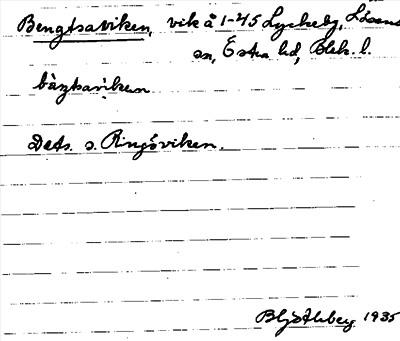 Bengtsaviken, vik å 1-45 Lyckeby, Lösens
sn, Östra hd, Blek. l.
bàŋtsavi̇kən
Dets. s. Ringöviken.
1935